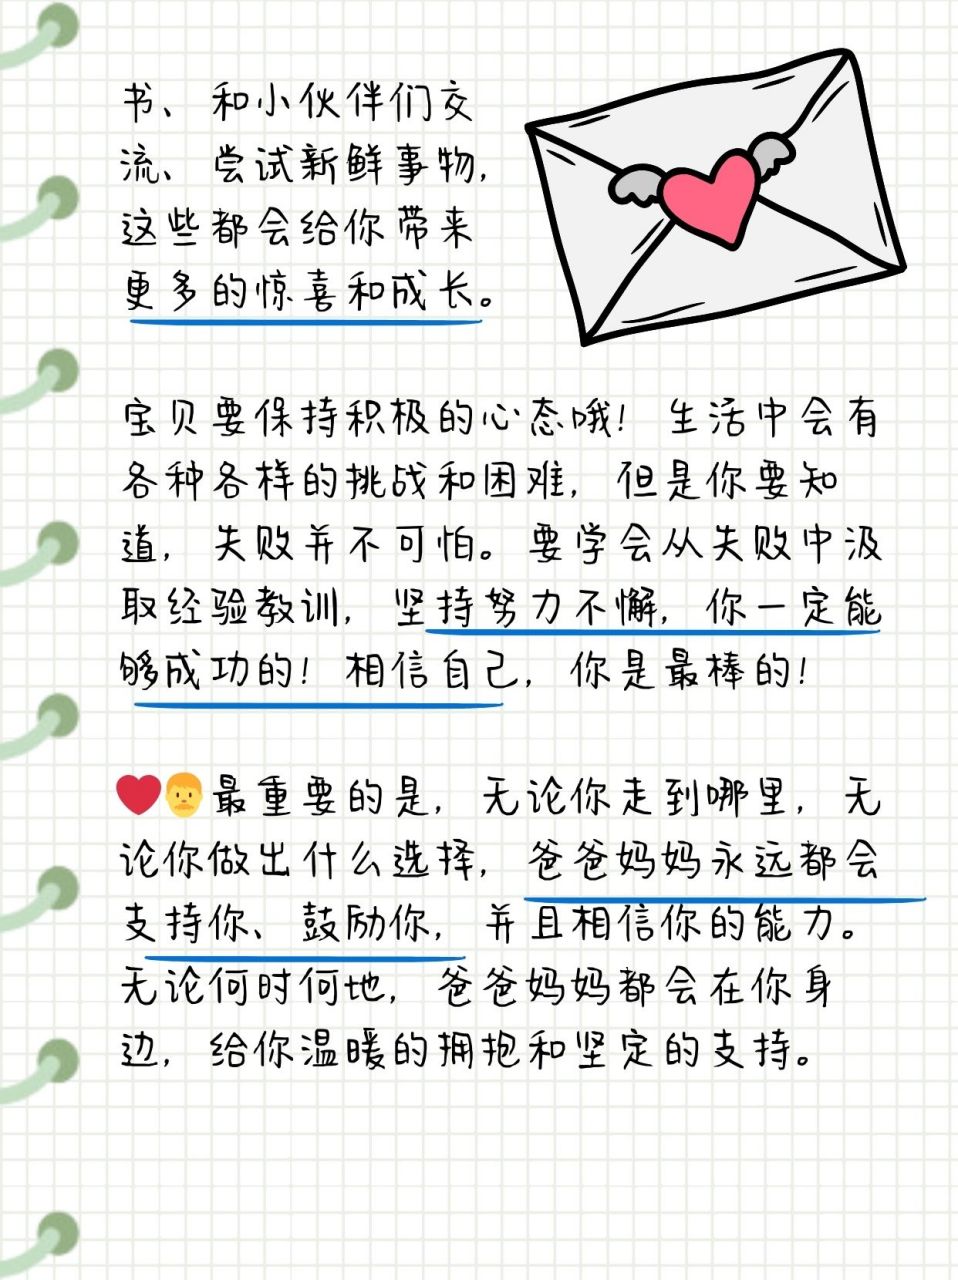 书、和小伙伴们交
流、尝试新鲜事物,
这些都会给你带来
更多的惊喜和成长。
宝贝要保持积极的心态哦！生活中会有
各种各样的挑战和困难,但是你要知
道,失败并不可怕。要学会从失败中汲
取经验教训,坚持努力不懈,你一定能
够成功的！相信自己,你是最棒的！
❤️👨最重要的是,无论你走到哪里,无
论你做出什么选择,爸爸妈妈永远都会
支持你、鼓励你,并且相信你的能力。
无论何时何地,爸爸妈妈都会在你身
边,给你温暖的拥抱和坚定的支持。